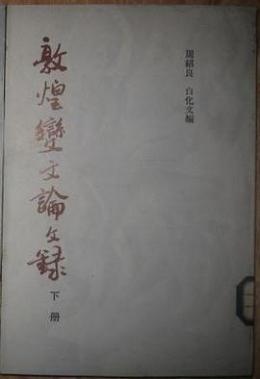 周紹良 白化文編
敦煌變文論文錄
下册